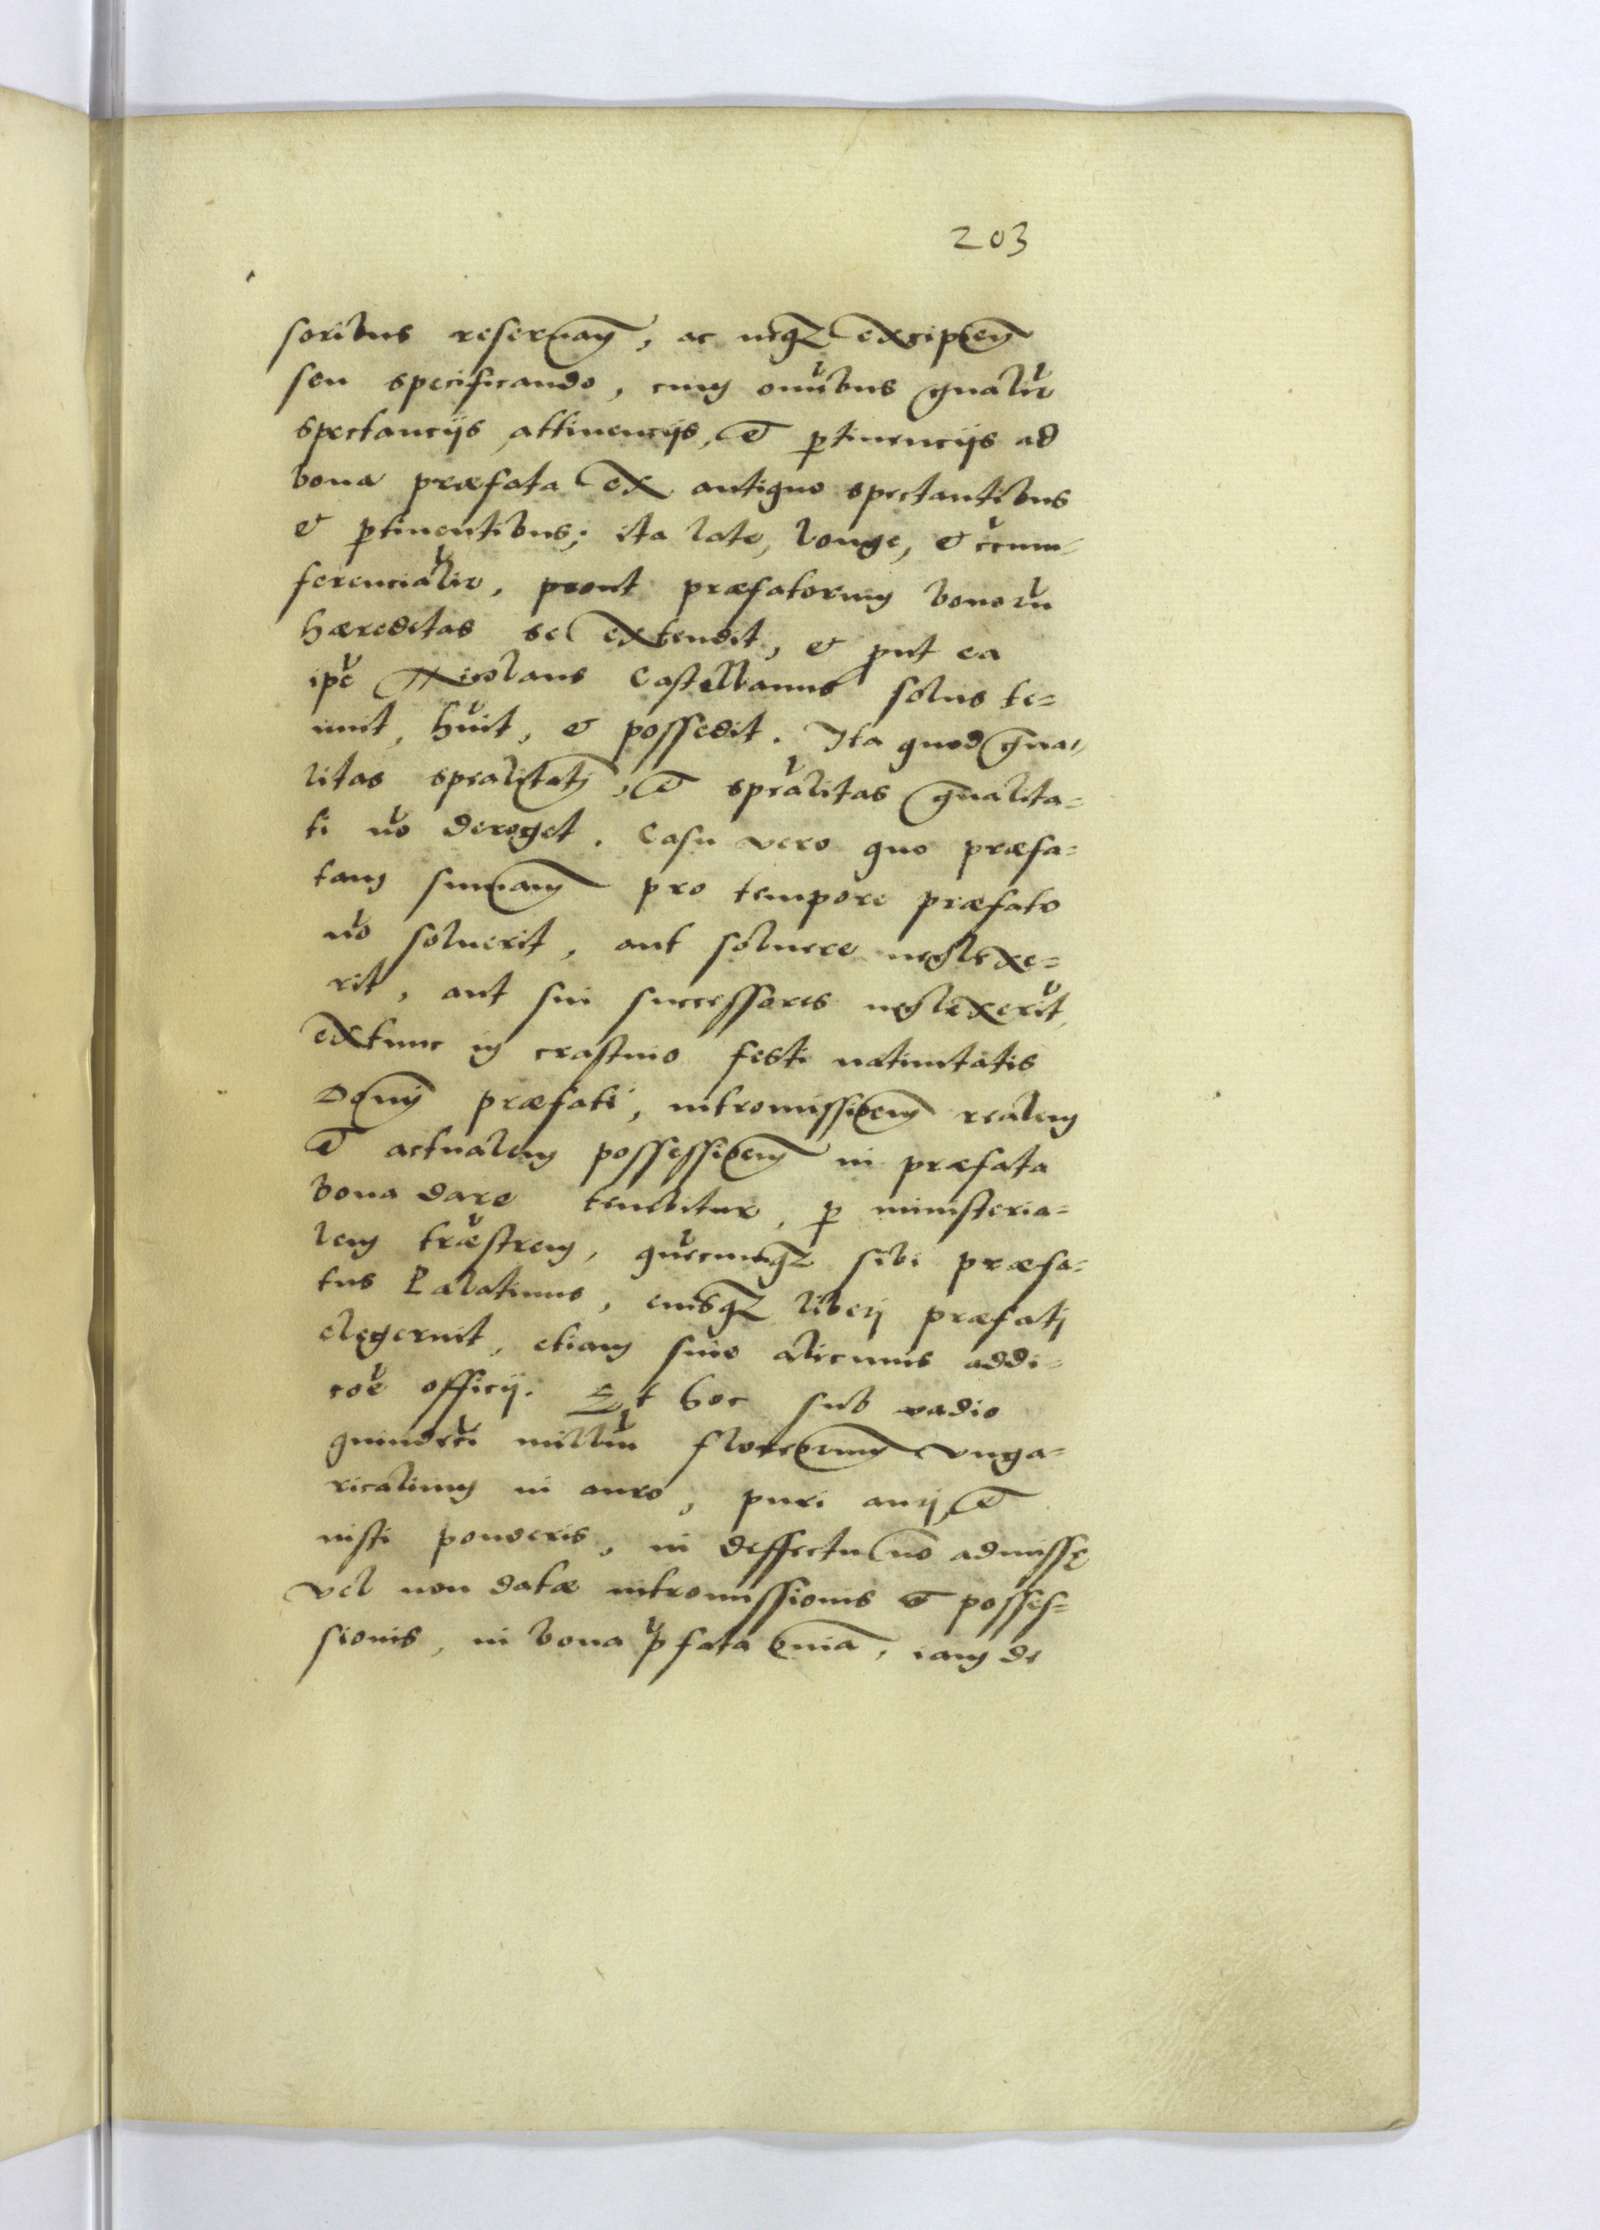 203
soribus reseruan̄, ac neqz excipien̄
seu specificando, cum omībus gn̄alīr
spectancijs, attinencijs, et ꝑtinencijs ad
bona præfata ex antiquo spectantibus
et ꝑtinentibus; ita late, longe, et circum-
ferencialīr, prout præfatorum bonorū
hæreditas se extendit, et ꝓut ea
ip̄e Nicolaus Castellanus solus te=
nuit, hūit, et possedit. Ita quod gn̄a-
litas sp̄alitatj, et sp̄alitas gn̄alita=
ti nō deroget. Casu vero quo præfa=
tam sum̄am pro tempore præfato
nō soluerit, aut soluere neglexe=
rit, aut sui successores neglexerīt,
extunc in crastino festi natiuitatis
Dom̄nj præfati, intromissio͞em realem
et actualem possessio͞em in præfata
bona dare tenebitur, ꝑ ministeria=
lem trrēstrem, quēcunqz sibi præfa=
tus Palatinus, eiusqz liberj præfatj
elegerint, etiam sine alicuius addi=
cōe officij. Et hoc sub vadio
quindecī milliū florenorum vnga=
ricalium in auro, puri aurj, et
iusti ponderis, in deffectu nō admissę
vel non datæ intromissionis et posses=
sionis, in bona p̄fata om̄nia, iam de